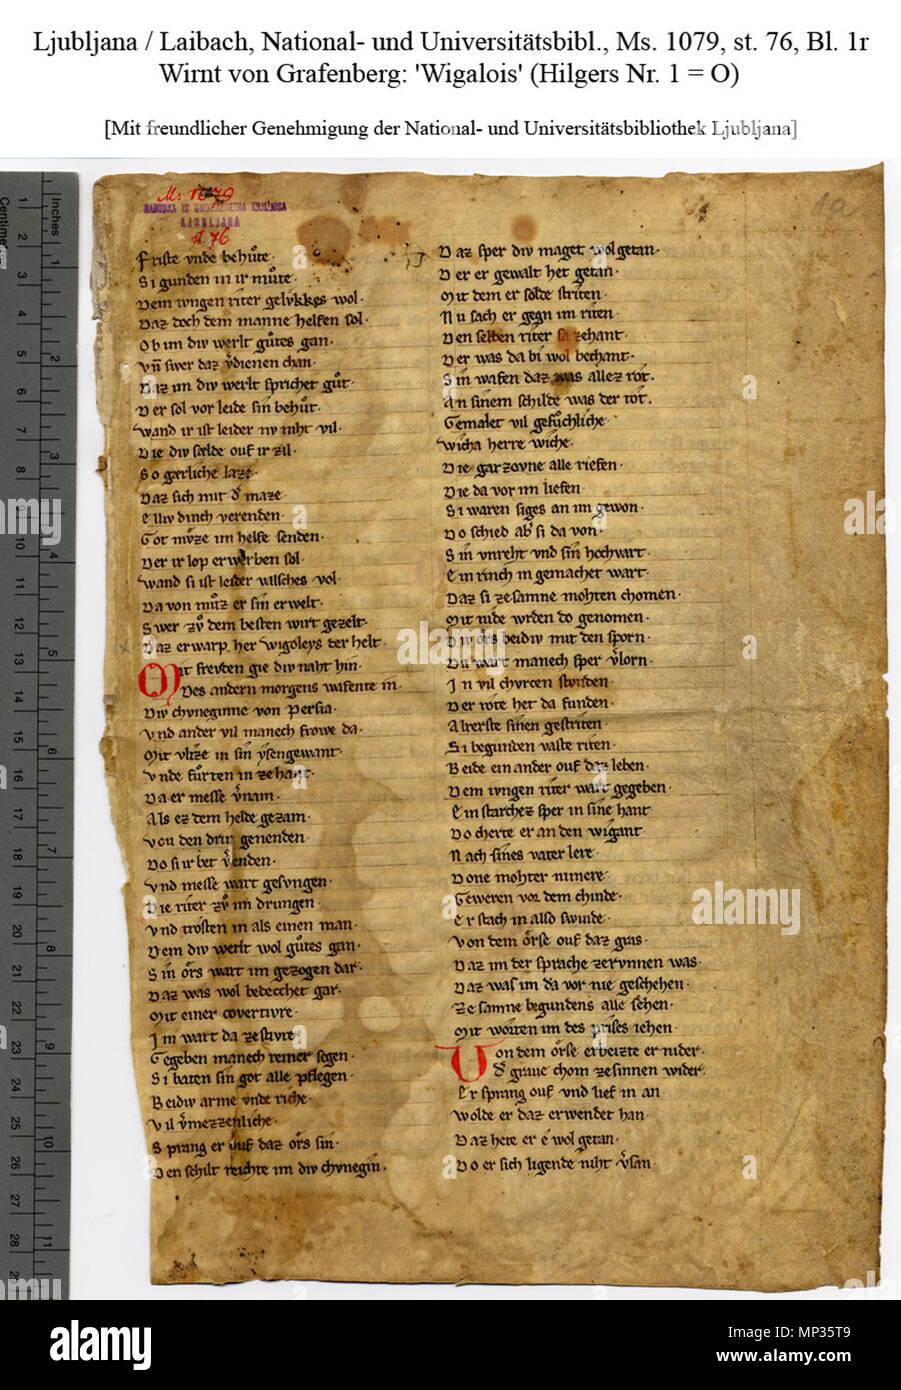 Ljubljana / Laibach, National- und Universitätsbibl., Ms. 1079, st. 76, Bl. 1r
Wirnt von Grafenberg: 'Wigalois' (Hilgers Nr. 1 = O)
[Mit freundlicher Genehmigung der National- und Universitätsbibliothek Ljubljana]
Ms 1079
NARODNA IN UNIVERZITETNA KNJIŽNICA
LJUBLJANA
st. 76
1a
Friste vnde behůte·
Si gunden in ir můte·
Dem ivngen riter gelvkkes wol·
Daz doch dem manne helfen sol·
Ob im div werlt gůtes gan·
Vn̄ swer daz v̓dienen chan·
Daz im div werlt sprichet gůt·
Der sol vor leide sin behůt·
Wand ir ist leider nv niht vil·
Die div sælde ouf ir zil·
So gærliche laze·
Daz sich mit d̓ maze
elliv dinch verenden·
Got mvͦze im helfe senden·
Der ir lop erwerben sol·
Wand si ist leider valsches vol·
Da von můz er sin erwelt·
Swer zv̊ dem besten wirt gezelt·
Daz erwarp her Wigoleys der helt·
Mit frevden gie div naht hin·
Des andern morgens wafente in·
Div chvneginne von Persia·
Vnd ander vil manech frowe da·
Mit vlize in sin ysengewant·
Vnde fůrten in zehant·
Da er messe v̓nam·
Als ez dem helde gezam·
Von den drin genenden·
Do si ir bet v̓enden·
Vnd messe wart gesvngen·
Die riter zv̊ im drungen·
Vnd trosten in als einen man·
Dem div werlt wol gůtes gan·
Sin ors wart im gezogen dar·
Daz was wol bedecchet gar·
Mit einer covertivre·
Im wart da zestivre
Gegeben manech reiner segen·
Si baten sin got alle pflegen·
Beidiv arme vnde riche·
Vil v̓mezzenliche·
Sprang er ouf daz ors sin·
Den schilt reichte im div chvnegin·
Daz sper div maget wolgetan·
Der er gewalt het getan·
Mit dem er solde striten·
Nu sach er gegn im riten·
Den selben riter sa zehant·
Der was da bi wol bechant·
Sin wafen daz was allez rot·
An sinem schilte was der tot·
Gemalet vil gefůchliche·
Wicha herre wiche·
Die garzovne alle riefen·
Die da vor im liefen·
Si waren siges an im gewon·
Do schied ab̓ si da von·
Sin vnreht vnd sin hochvart·
Ein rinch in gemachet wart·
Daz si zesamne mohten chomen·
Mit nide wrden do genomen·
Div ors beidiv mit den sporn·
Da wart manech sper v̓lorn·
In vil chvrcen stvnden·
Der rote het da funden·
Alrerste sinen gestriten·
Si begunden vaste riten·
Beide ein ander ouf daz leben·
Dem ivngen riter wart gegeben·
Ein starchez sper in sine hant
Do cherte er an den wigant·
Nach sines vater lere·
Done mohter nimere·
Geweren vor dem chinde·
Er stach in also swinde·
Von dem orse ouf daz gras·
Daz im der sprache zervnnen was·
Daz was im da vor nie geschehen·
Zesamne begundens alle sehen·
Mit worten im des prises iehen·
Von dem orse erbeizte er nider·
D̓ graue chom zesinnen wider·
Er sprang ouf vnd lief in an
Wolde er daz erwendet han·
Daz hete er e wol getan·
Do er sich ligende niht v̓san·
alamy
Image ID: MP35T9
www.alamy.com